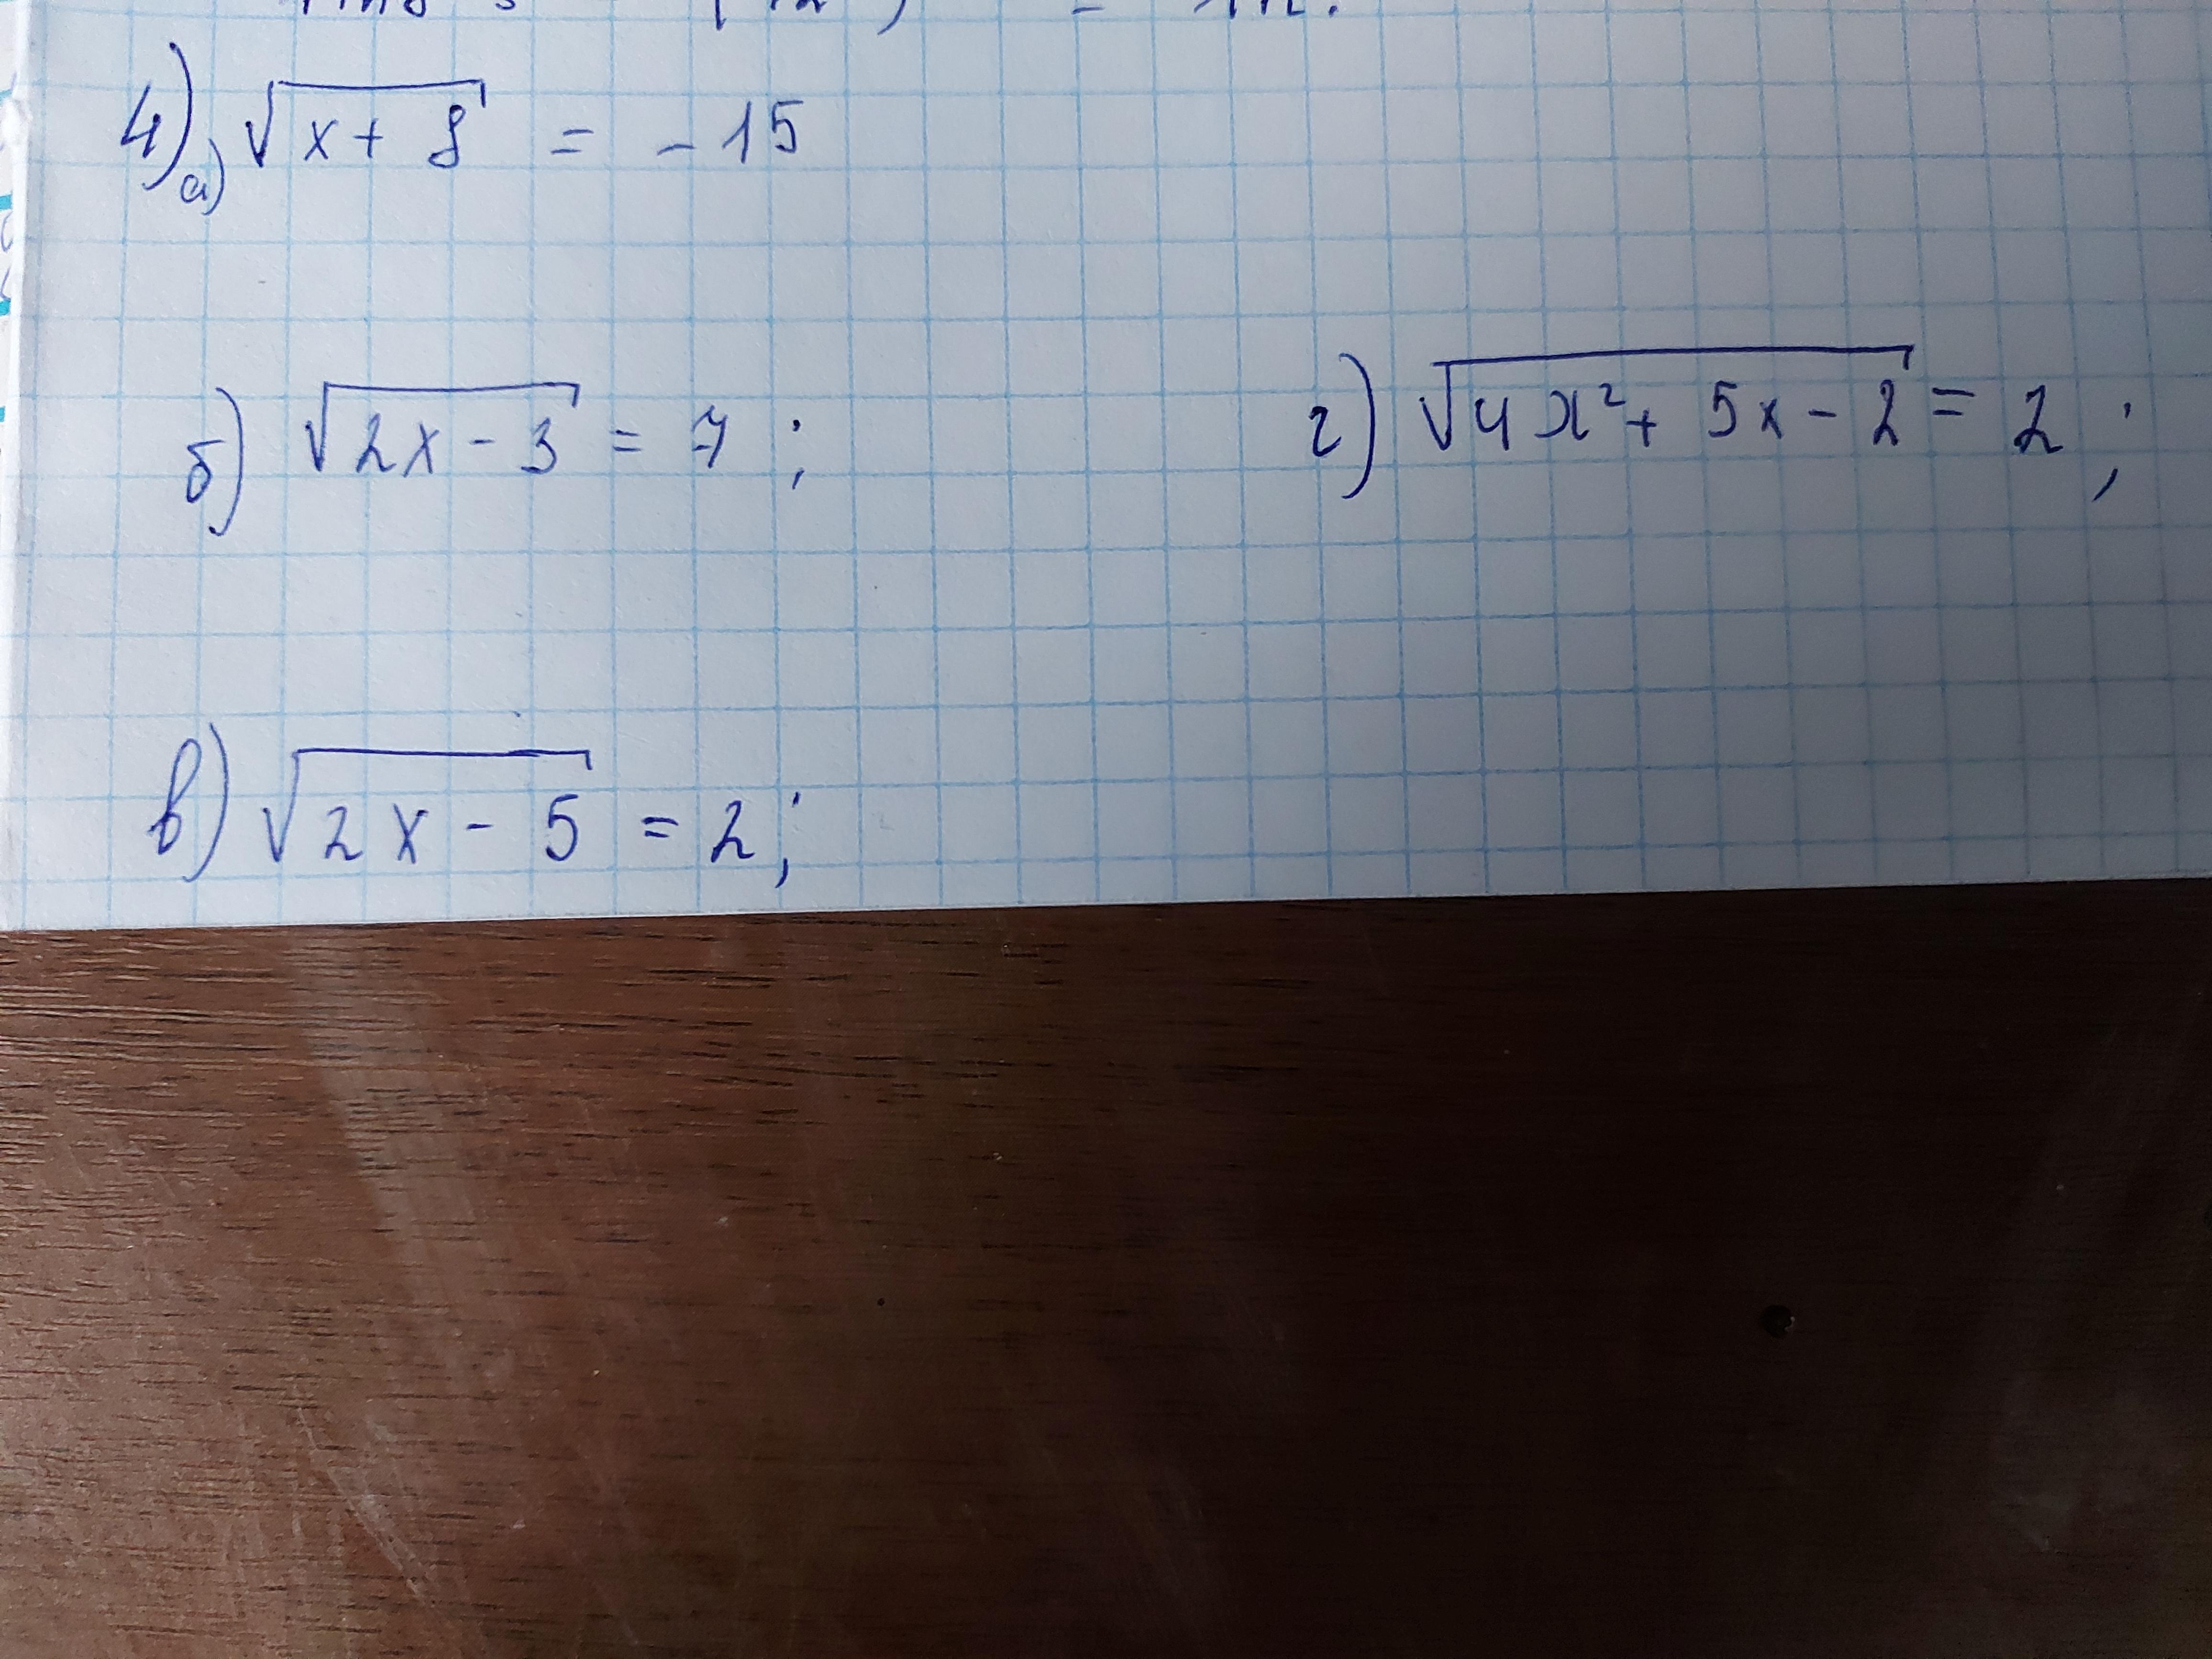 4) а) √(x + 8) = - 15
б) √(2x - 3) = 7 ;
г) √(4x² + 5x - 2) = 2 ;
в) √(2x - 5) = 2 ;